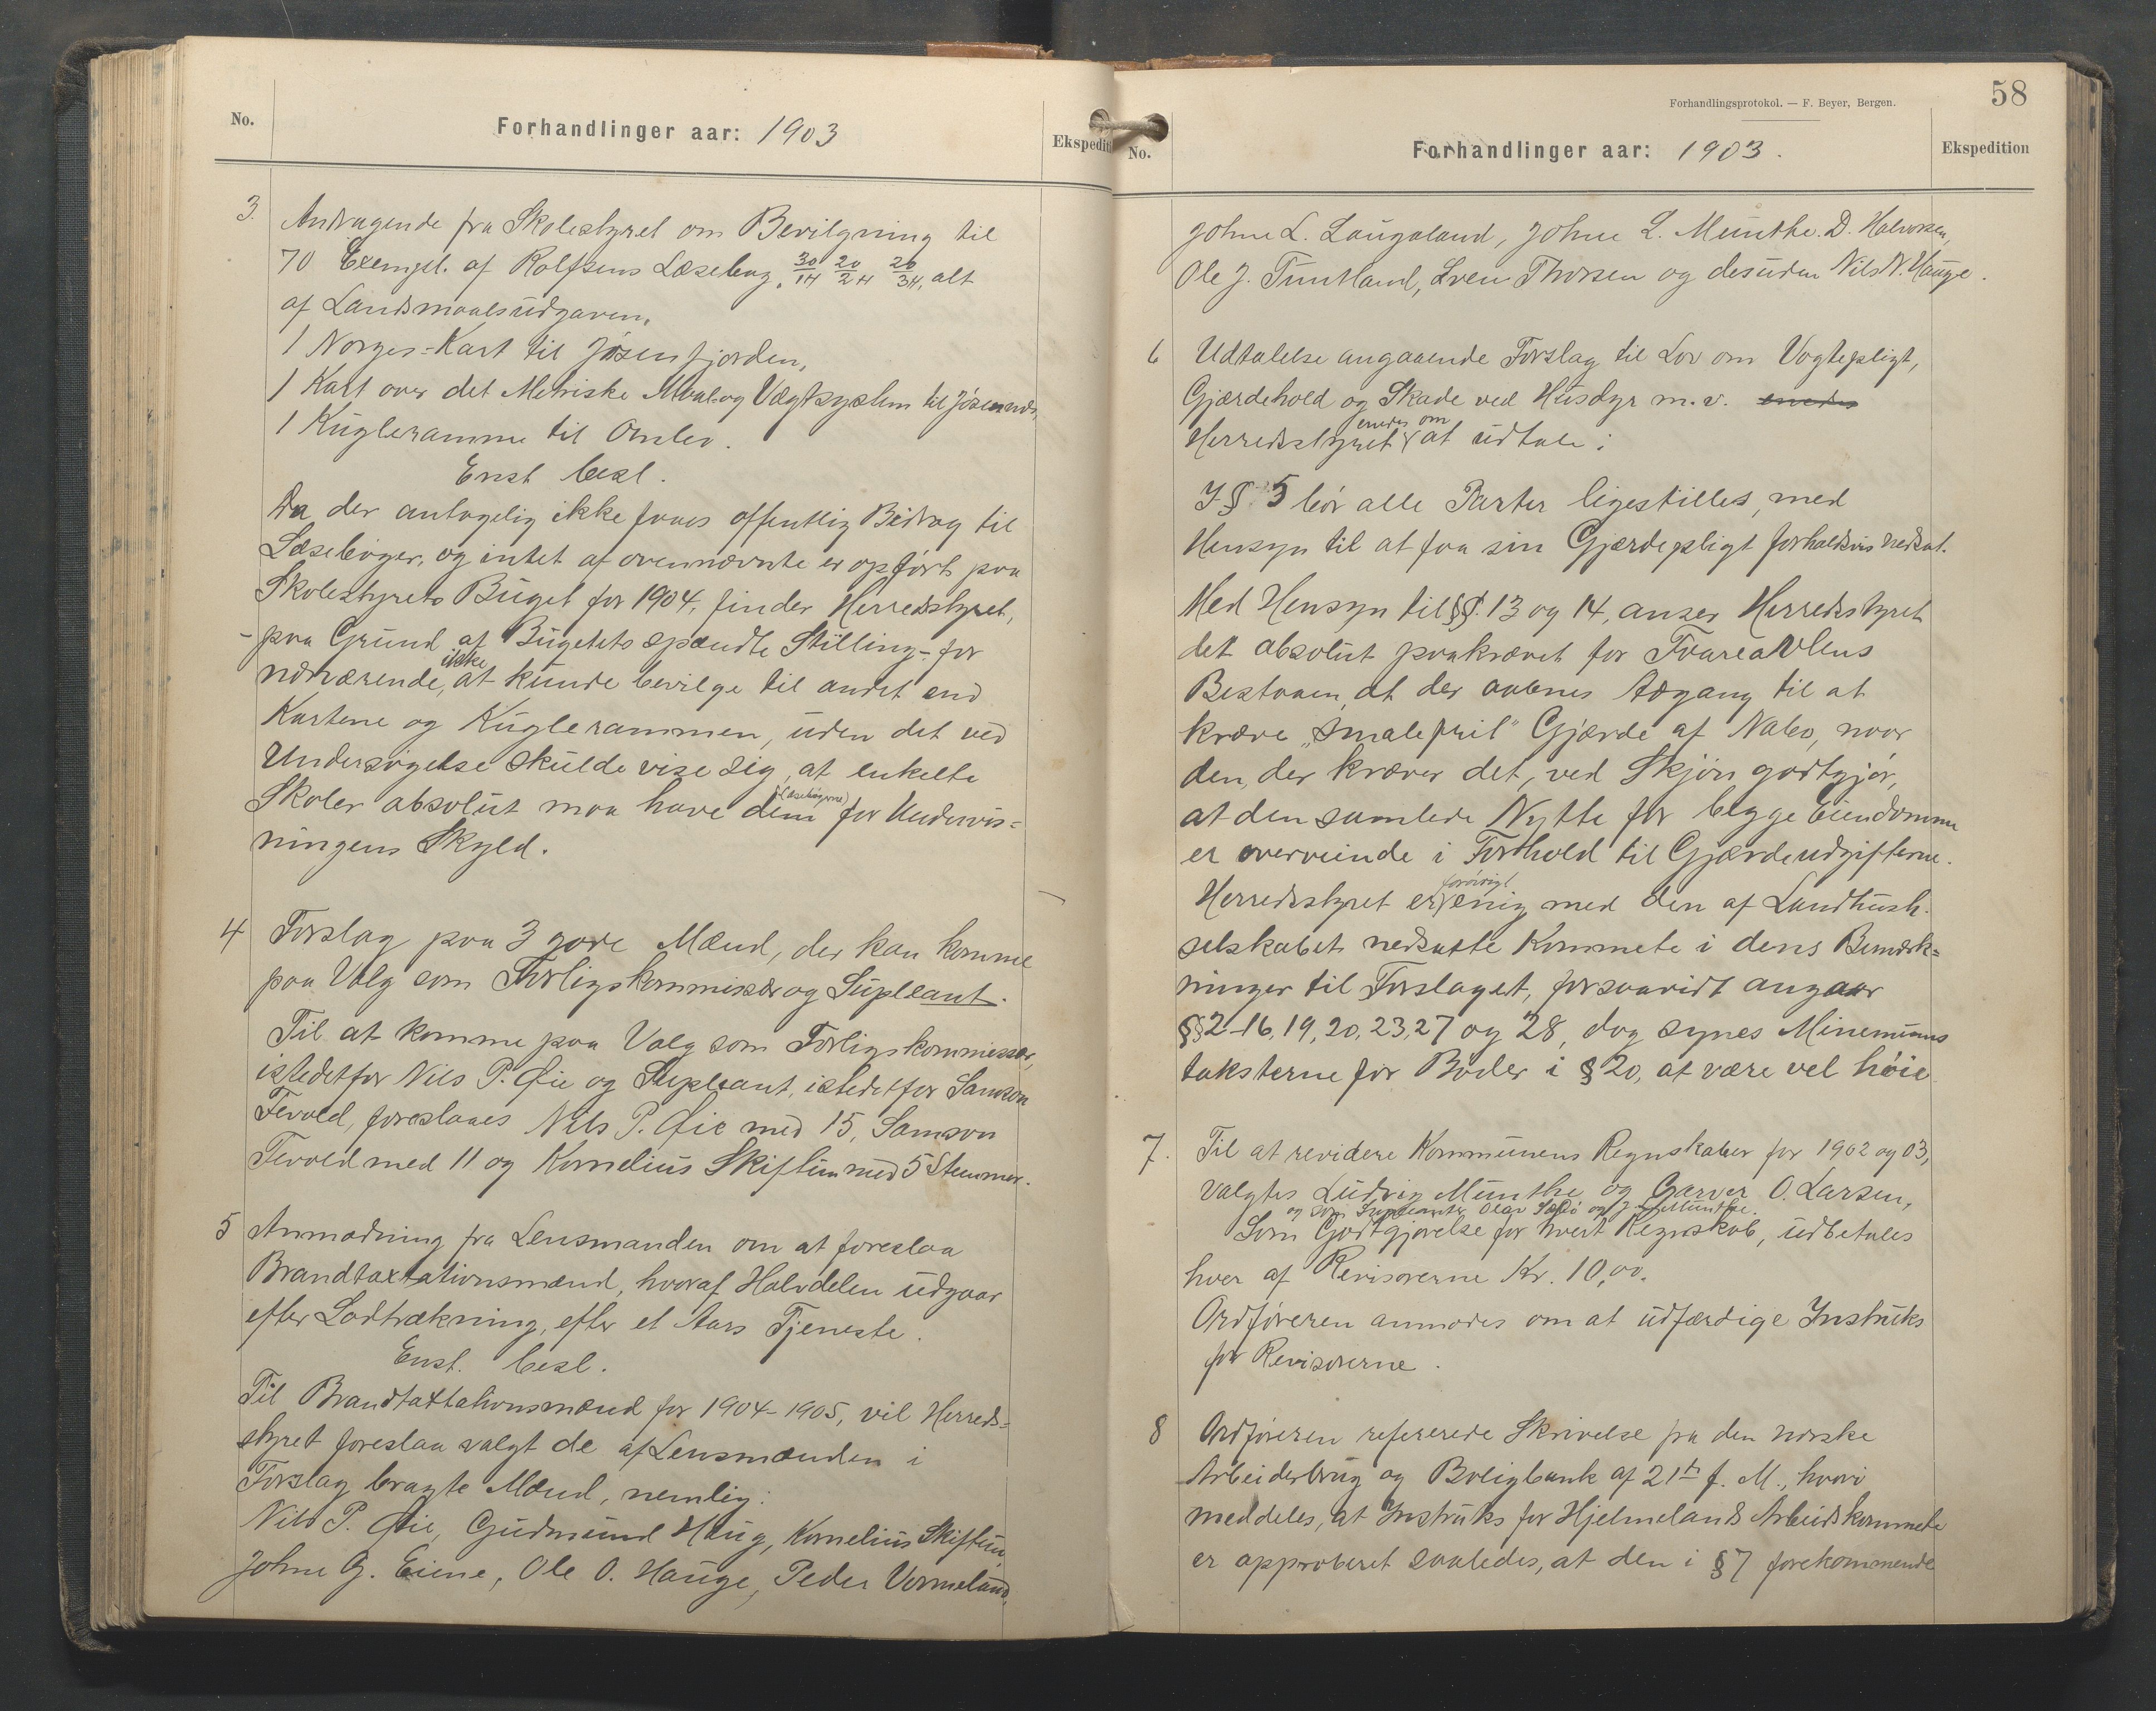 No.
Forhandlinger aar: 1903
Ekspediti
3. Andragende fra Skolestyret om Bevilgning til
70 Exempl. af Rolfsens Læsebog, 30/14 20/24 20/34, alt
af Landsmaalsudgaven,
1 Norges-Kart til Jøsenfjorden,
1 Kart over det Metriske Maal og Vægtsystem til Jøseneset,
1 Kugleramme til Ombo.
Enst besl.
Da der antagelig ikke faaes offentlig Bidrag til
Læsebøger, og intet af ovennævnte er opført paa
Skolestyrets Buget for 1904, finder Herredsstyret,
- paa Grund af Bugettets spændte Stilling - for
nærværende, ikke at kunde bevilge til andet end
Kartene og Kuglerammen, uden det ved
Undersøgelse skulde vise sig, at enkelte
Skoler absolut maa have dem (Læsebøgerne) for Undervis=
ningens Skyld.
4 Forslag paa 3 gode Mænd, der kan komme
paa Valg som Forligskommissær og Supleant.
Til at komme paa Valg som Forligskommissær,
istedetfor Nils P. Øie og Supleant, istedetfor Samson
Tevold, foreslaaes Nils P. Øie med 15, Samson
Tevold med 11 og Kornelius Skiftun med 5 Stemmer.
5 Anmodning fra Lensmanden om at foreslaa
Brandtaxtationsmænd, hvoraf Halvdelen udgaar
efter Lodtrækning, efter et Aars Tjeneste.
Enst. besl.
Til Brandtaxtationsmænd for 1904-1905, vil Herreds=
styret foreslaa valgt de af Lensmanden i
Forslag bragte Mænd, nemlig:
Nils P. Øie, Gudmund Haug, Kornelius Skiftun,
Johne G. Eiene, Ole O. Hauge, Peder Vormeland,
Forhandlingsprotokol. — F. Beyer, Bergen.
58
No.
Forhandlinger aar: 1903.
Ekspedition
Johne L. Laugaland, Johne L. Munthe. D. Halvorsen,
Ole J. Tuntland, Sven Thorsen og desuden Nils N. Hauge.
6 Udtalelse angaaende Forslag til Lov om Vogtepligt,
Gjærdehold og Skade ved Husdyr m.v. enedes
Herredsstyret enedes om at udtale:
I § 5 bør alle Parter ligestilles, med
Hensyn til at faa sin Gjærdepligt forholdsvis nedsat.
Med Hensyn til §§. 13 og 14, anser Herredsstyret
det absolut paakrævet for Faareavlens
Bestaaen, at der aabnes Adgang til at
kræve "smalefrit" Gjærde af Nabo, naar
den, der kræver det, ved Skjøn godtgjør,
at den samlede Nytte for begge Eiendomme
er overveiende i Forhold til Gjærdeudgifterne.
Herredsstyret er forøvrigt enig med den af Landhush.
selskabet nedsatte Kommete i dens Bemærk=
ninger til Forslaget, forsaavidt angaar
§§ 2-16, 19, 20, 23, 27 og 28, dog synes Minemums
taksterne for Bøder i § 20, at være vel høie
7. Til at revidere Kommunens Regnskaber for 1902 og 03,
valgtes Ludvig Munthe og Garver O. Larsen,
og som Supleanter Olav og J. Munthe.
Som Godtgjørelse for hvert Regnskab, udbetales
hver af Revisorerne Kr. 10,00.
Ordføreren anmodes om at udfærdige Instruks
for Revisorerne.
8 Ordføreren refererede Skrivelse fra den norske
Arbeiderbrug og Boligbank af 21de f. M., hvori
meddeles, at Instruks for Hjelmelands Arbeidskommete
er approberet saaledes, at den i § 7 forekommende